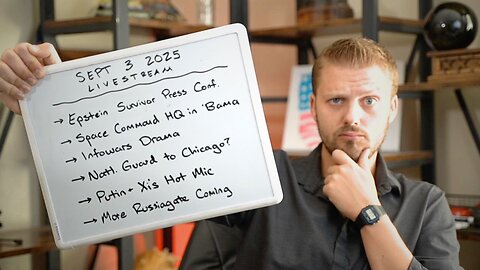 SEPT 3 2025
LIVESTREAM
→ Epstein Survivor Press Conf.
→ Space Command HQ in 'Bama
→ Infowars Drama
→ Natl. Guard to Chicago?
→ Putin + Xi's Hot Mic
→ More Russiagate Coming